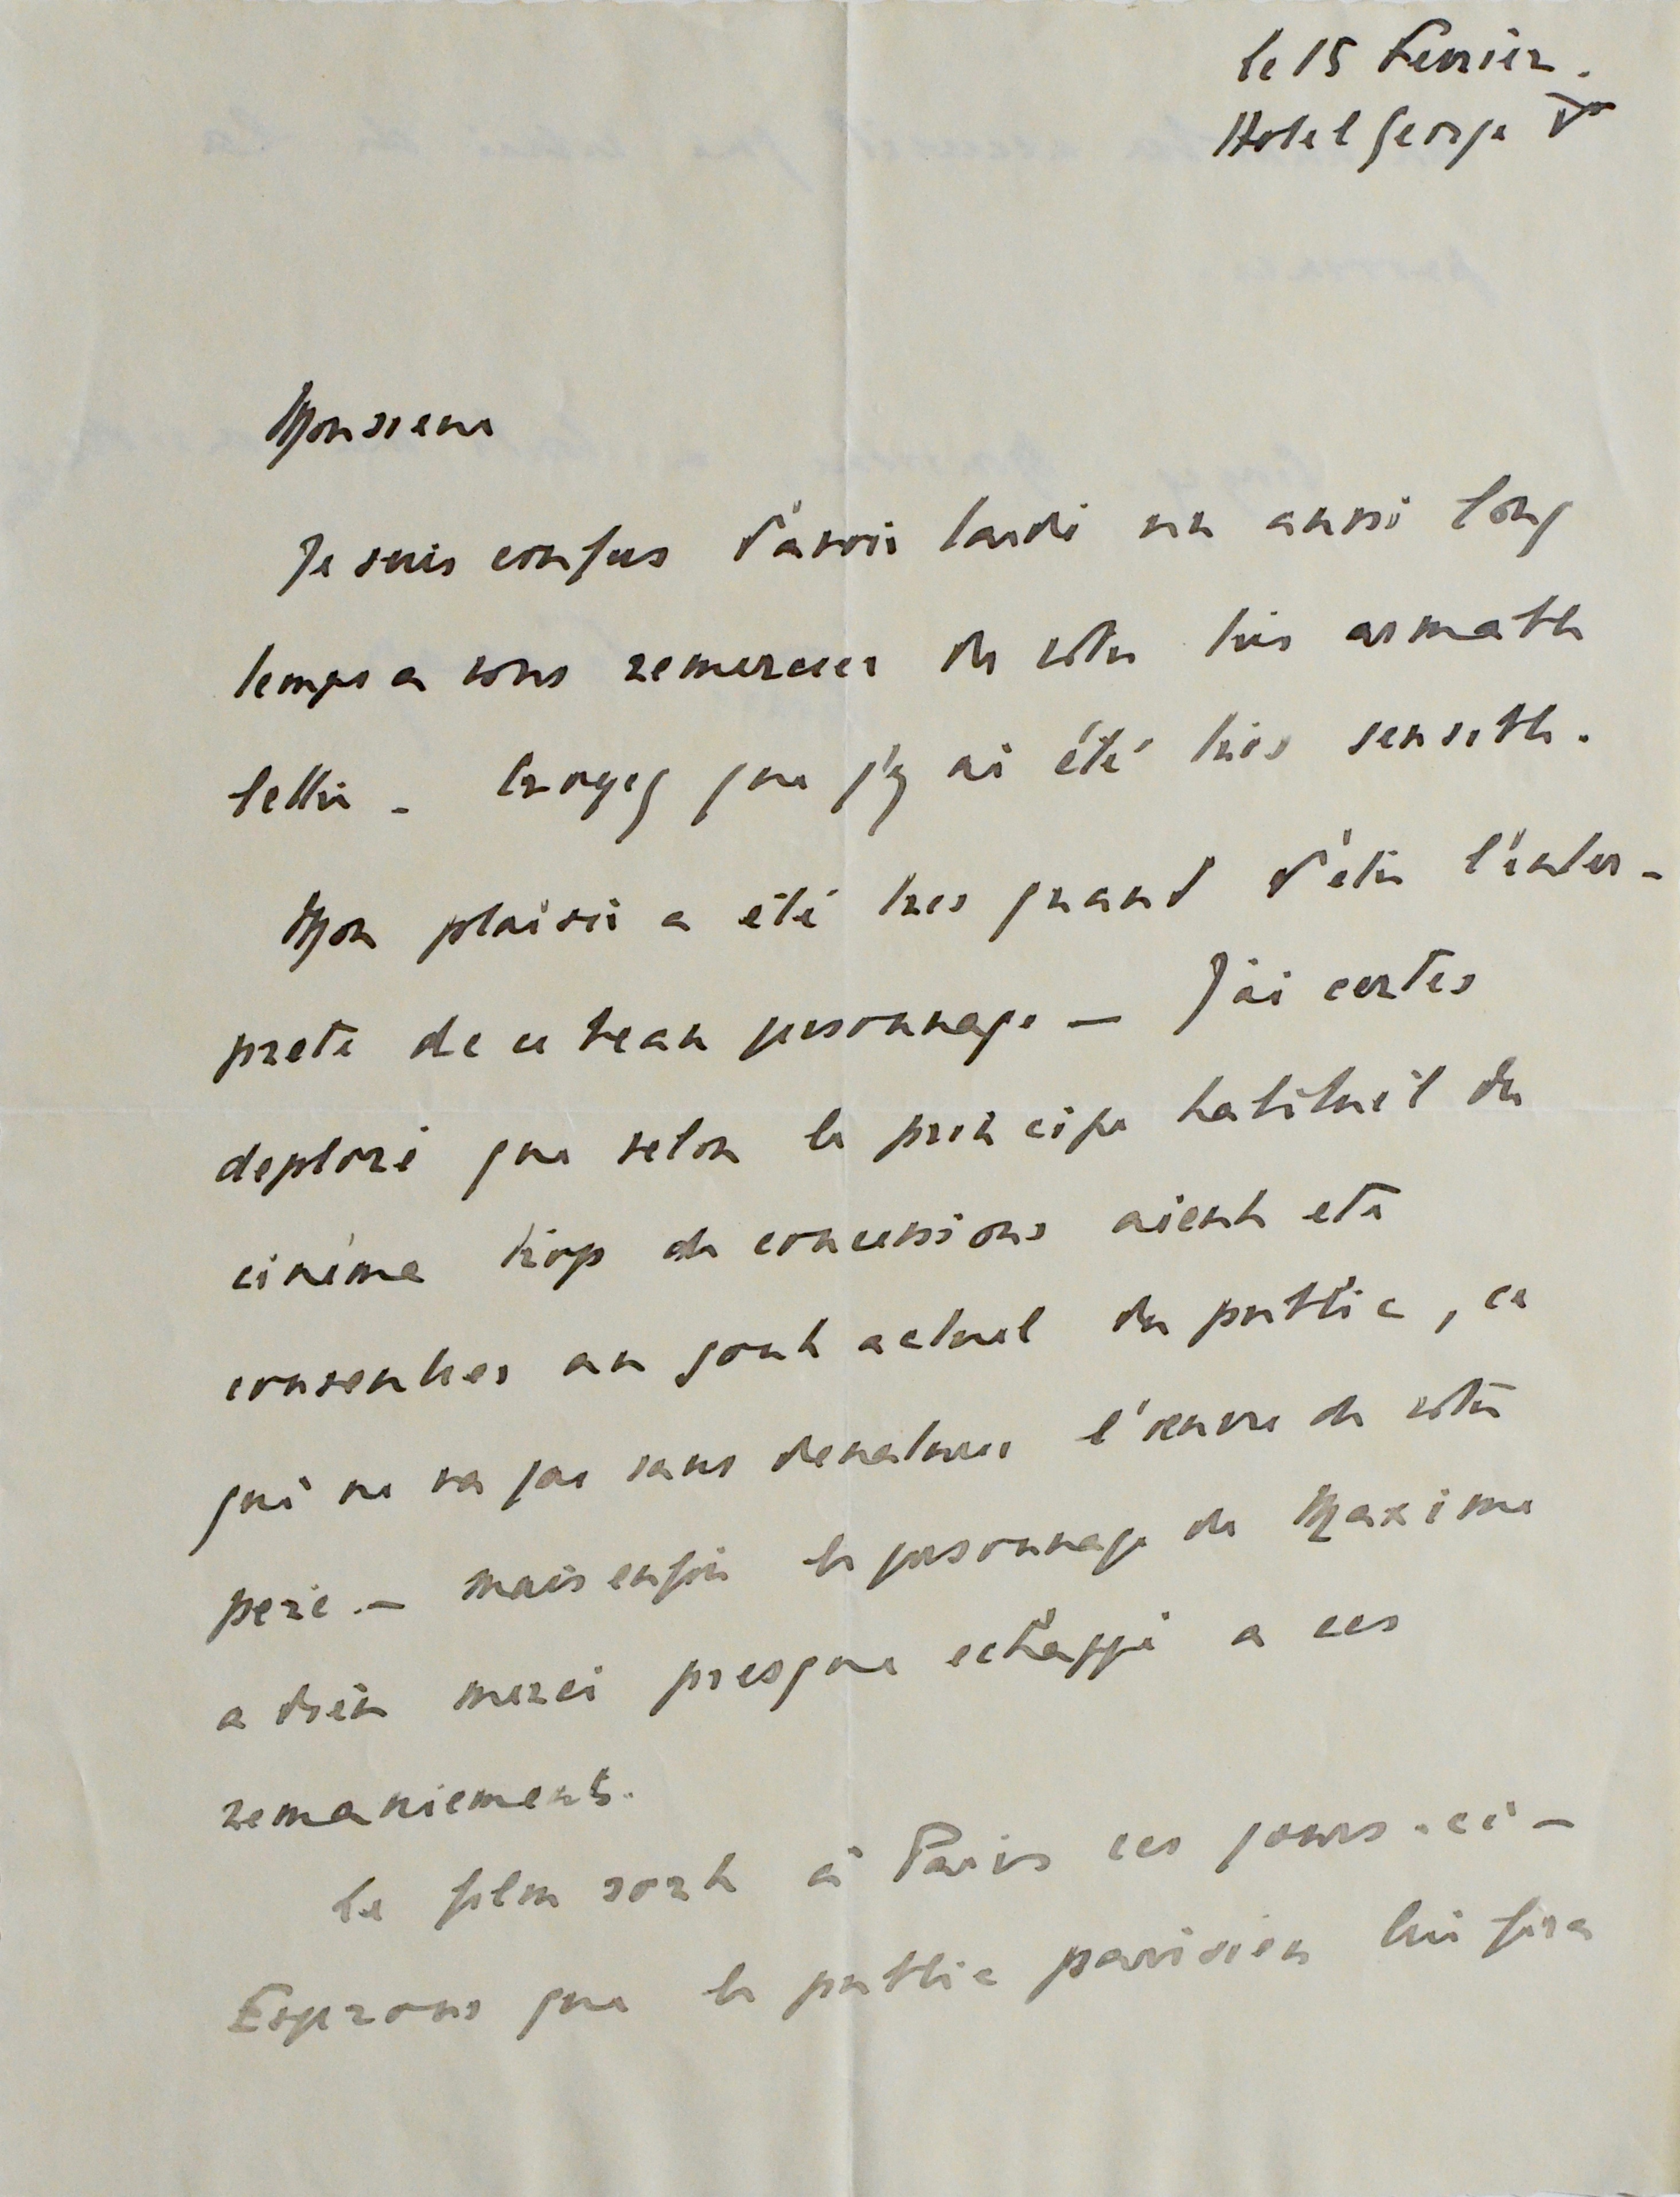 le 15 Fevrier.
Hotel George V
Monsieur
Je suis confus d'avoir tardé un aussi long
temps a vous remercier de votre très aimable
lettre - Croyez que j'y ai été très sensible.
Mon plaisir a été tres grand d'être l'inter-
prete de ce beau personnage - J'ai certes
deploré que selon le principe habituel du
cinéma trop de concessions aient ete
consenties au gout actuel du public, ce
qui ne va pas sans denaturer l'œuvre de votre
pere. - mais enfin le personnage de Maxime
a dieu merci presque echappé a ces
remaniements.
Le film sort à Paris ces jours-ci -
Esperons que le public parisien lui fera